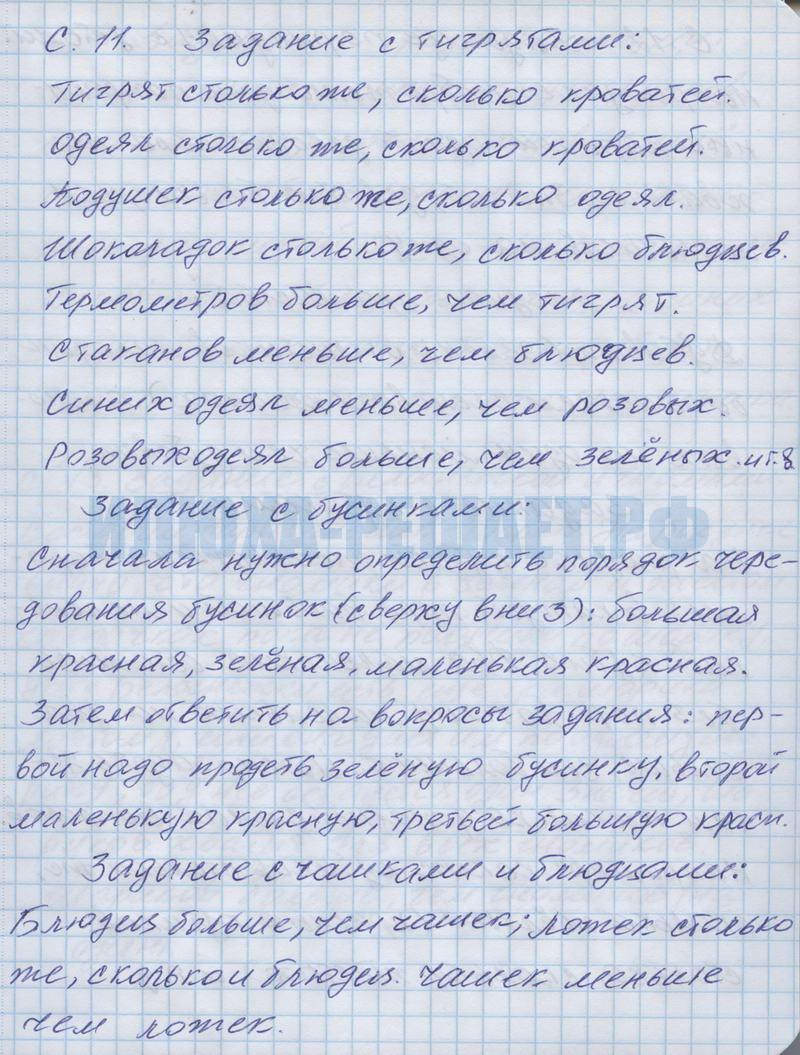 С. 11. Задание с тигрятами:
Тигрят столько же, сколько кроватей.
Одеял столько же, сколько кроватей.
Подушек столько же, сколько одеял.
Шоколадок столько же, сколько блюдцев.
Термометров больше, чем тигрят.
Стаканов меньше, чем блюдцев.
Синих одеял меньше, чем розовых.
Розовых одеял больше, чем зелёных. и т.д
Задание с бусинками:
ИЛЮХА-РЕШАЕТ.РФ
Сначала нужно определить порядок чере-
дования бусинок (сверху вниз): большая
красная, зелёная, маленькая красная.
Затем ответить на вопросы задания: пер-
вой надо продеть зелёную бусинку, второй
маленькую красную, третьей большую красн.
Задание с чашками и блюдцами:
Блюдец больше, чем чашек; ложек столько
же, сколько и блюдец. Чашек меньше
чем ложек.